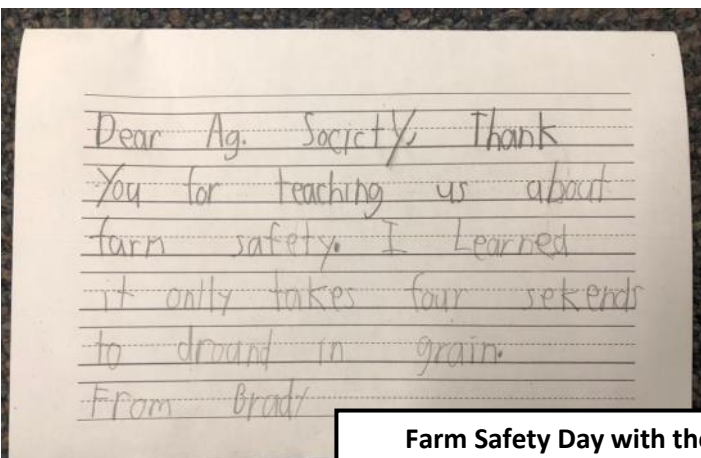 Dear Ag. Society, Thank
You for teaching us about
farm safety. I Learned
it onlly takes four sekends
to dround in grain.
From Brady
Farm Safety Day with the